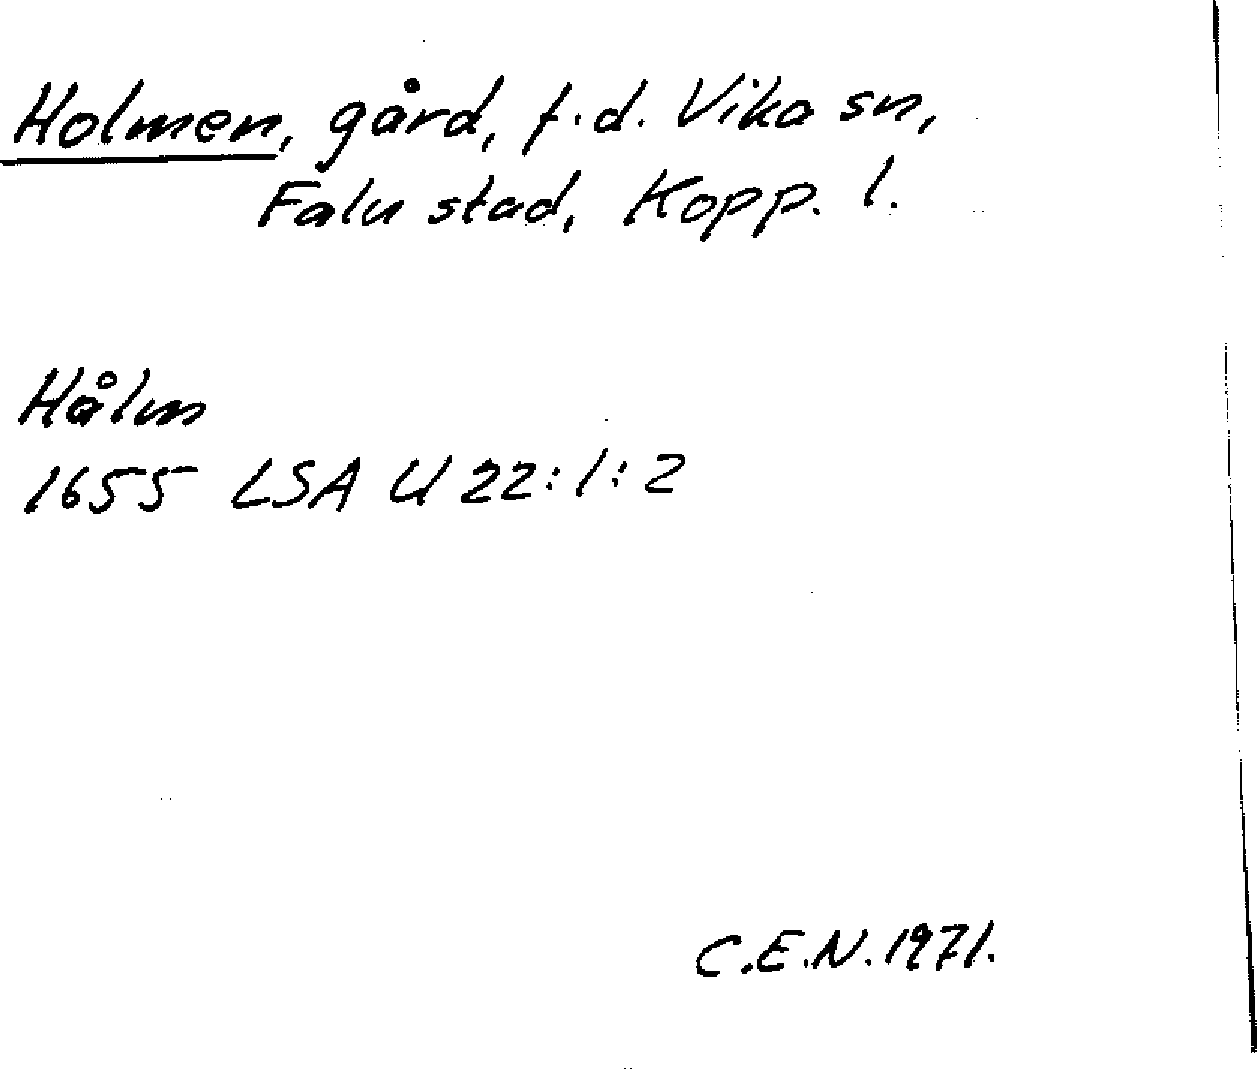 Holmen, gård, f.d. Vika sn,
Falu stad, Kopp. l.
Hålm
1655 LSA U 22:1:2
C.E.N. 1971.